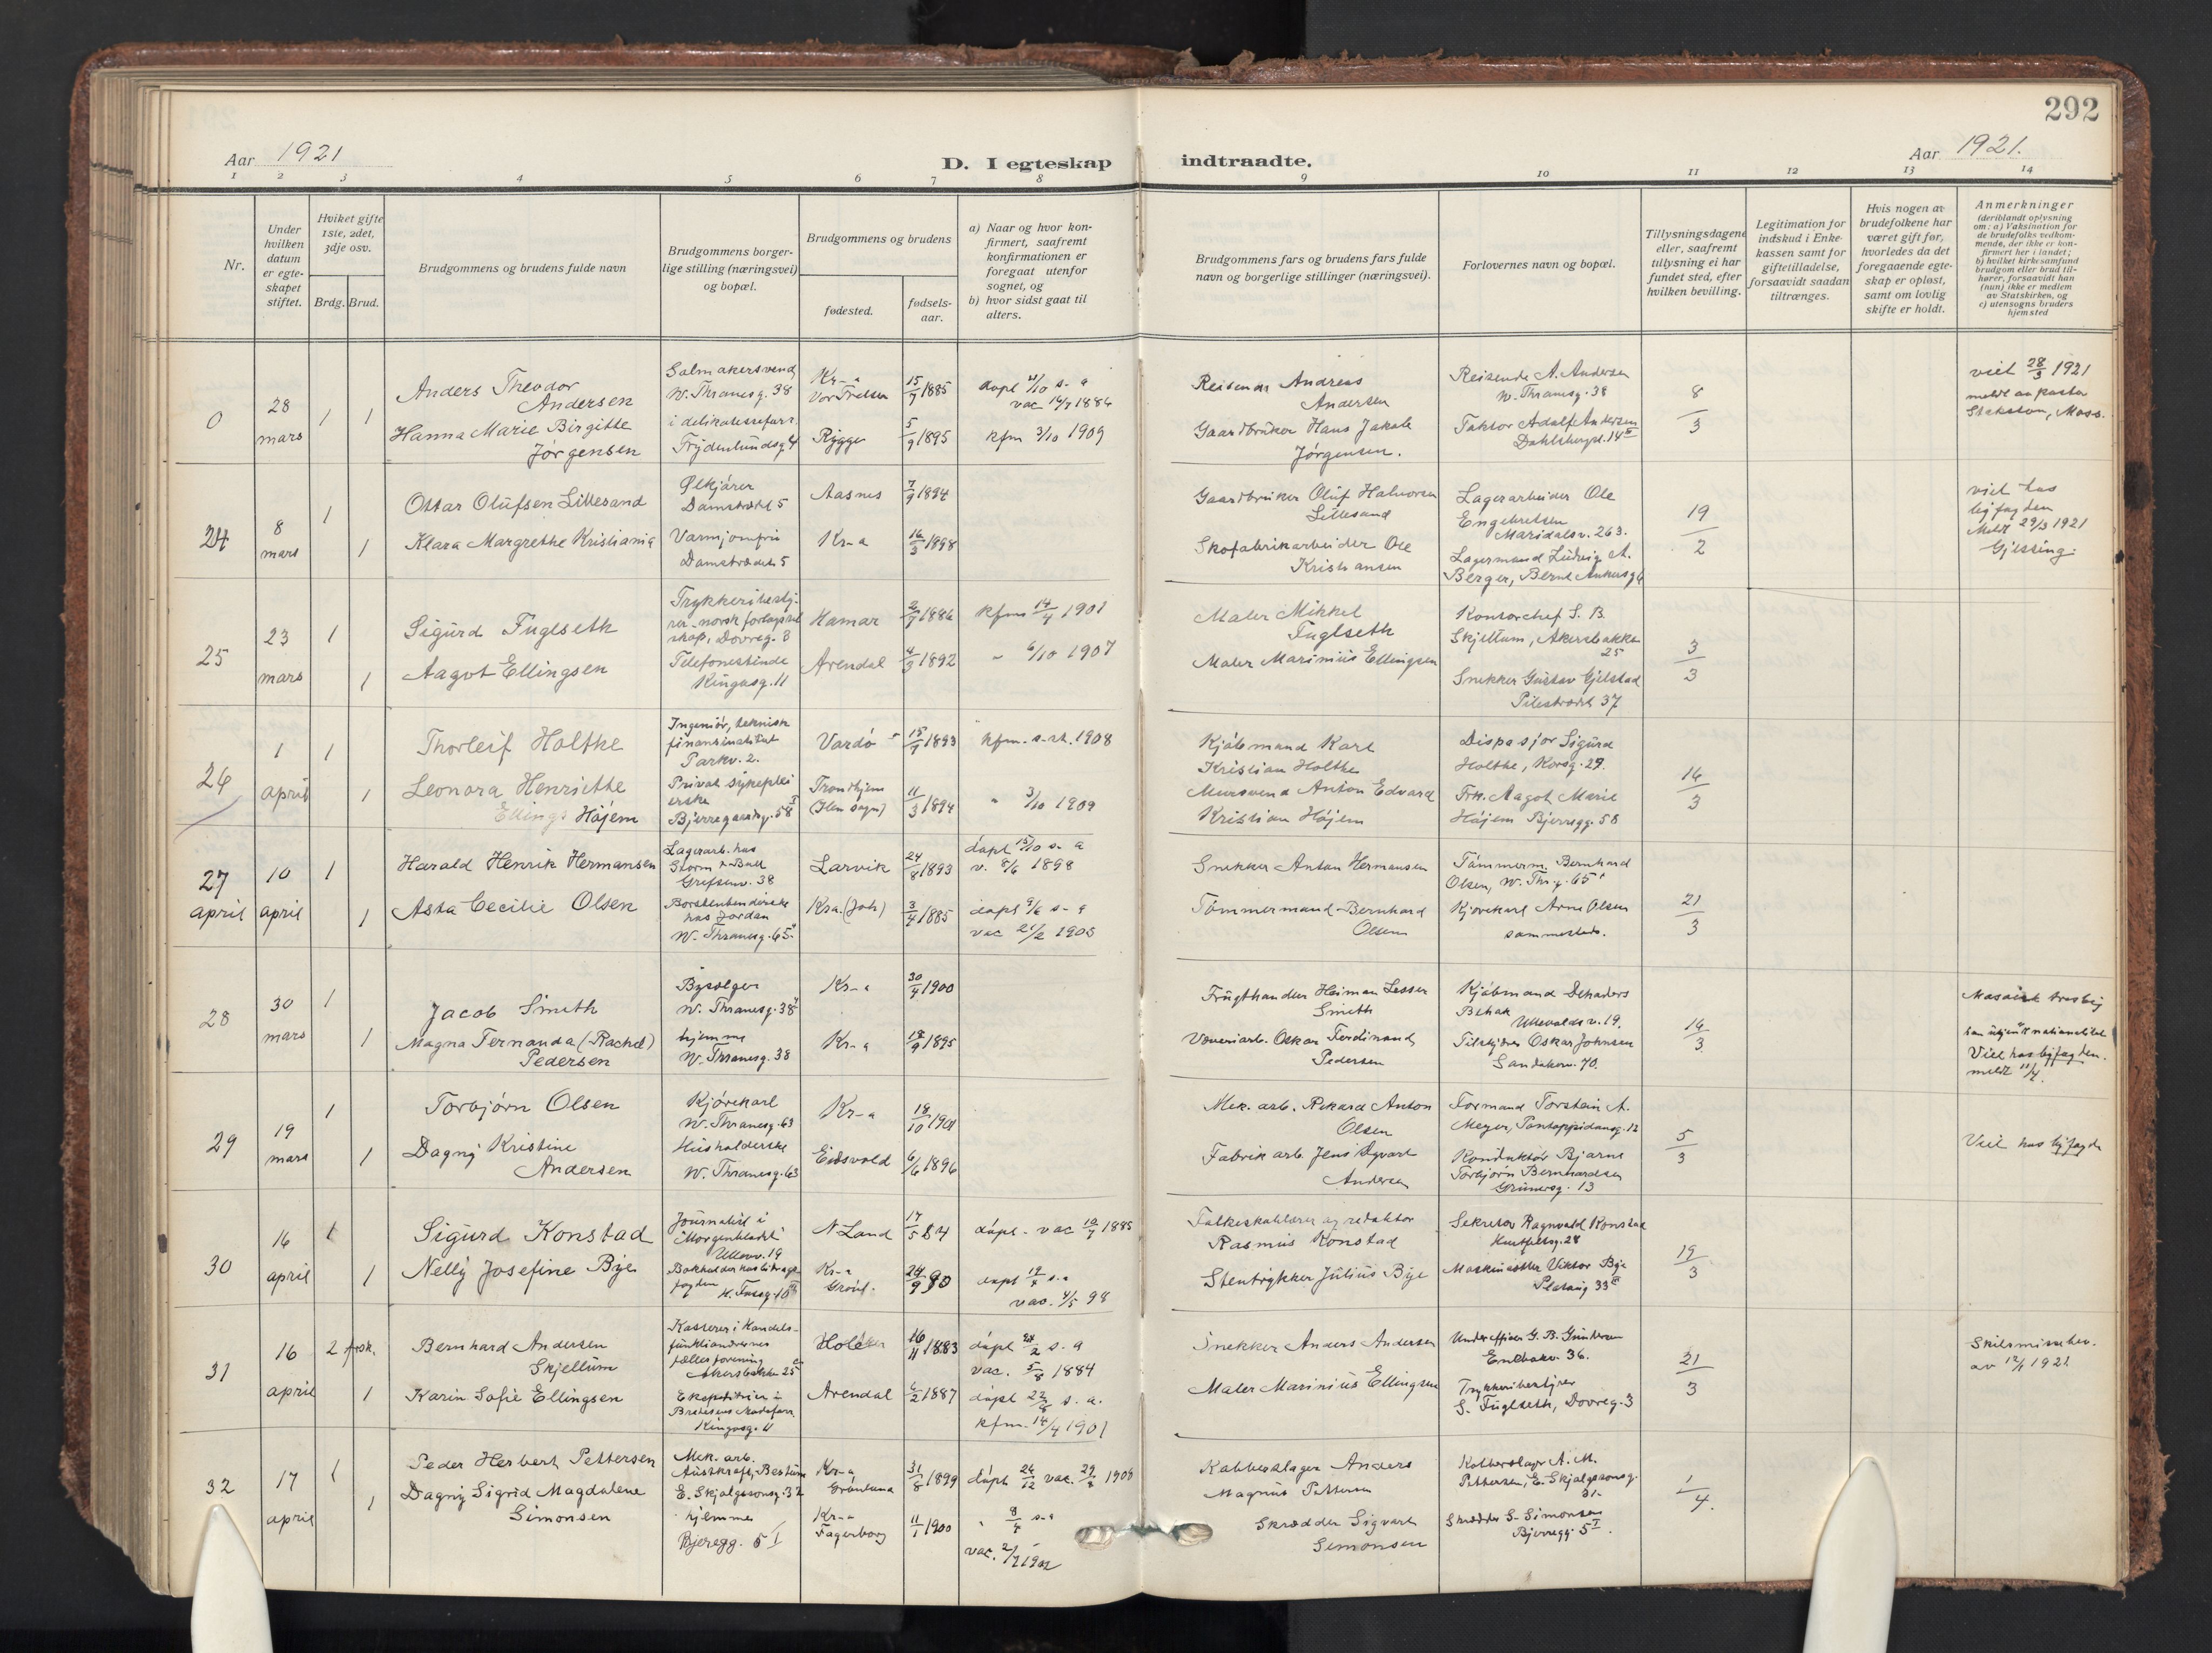 292
Aar 1921
D. I egteskap indtraadte.
Aar 1921.
1 2 3 4 5 6 7 8 9 10 11 12 13 14
Nr.
Under hvilken datum er egteskapet stiftet.
Hvilket gifte 1ste, 2det, 3dje osv.
Brdg. Brud.
Brudgommens og brudens fulde navn
Brudgommens borgerlige stilling (næringsvei) og bopæl.
Brudgommens og brudens
fødested.
fødselsaar.
a) Naar og hvor konfirmert, saafremt konfirmationen er foregaat utenfor sognet, og
b) hvor sidst gaat til alters.
Brudgommens fars og brudens fars fulde navn og borgerlige stillinger (næringsvei).
Forlovernes navn og bopæl.
Tillysningsdagene eller, saafremt tillysning ei har fundet sted, efter hvilken bevilling.
Legitimation for indskud i Enkekassen samt for giftetilladelse, forsaavidt saadan tiltrænges.
Hvis nogen av brudefolkene har været gift før, hvorledes da det foregaaende egteskap er opløst, samt om lovlig skifte er holdt.
Anmerkninger
(deriblandt oplysning om: a) Vaksination for de brudefolks vedkommende, der ikke er konfirmert her i landet;
b) hvilket kirkesamfund brudgom eller brud tilhører, forsaavidt han (hun) ikke er medlem av Statskirken, og
c) utensogns bruders hjemsted
0
28 mars
1 1
Anders Theodor Andersen
Hanna Marie Birgitte Jørgensen
Salmakersvend
W. Thranesg. 38
i delikatesseforr.
Frydenlundsg. 4
Kr-a
Vor Frelser
Rygge
15/9 1885
5/9 1895
vac 16/7 1886
kfm 3/10 1909
Reisende Andreas Andersen
Gaardbruker Hans Jakob Jørgensen.
Reisende A. Andersen
W. Thranesg. 38
Faktor Adolf Andersen
8/3
viet 28/3 1921
Moss.
24
8 mars
1
1
Ottar Olufsen Lillesand
Klara Margrethe Kristiania
Ølkjører
Damstrædet 5
Varmjomfru
Damstrædet 5
Aasnes
Kr-a
7/9 1894
16/3 1898
Gaardbruker Oluf Halvorsen Lillesand
Skofabrikarbeider Ole Kristiansen
Lagerarbeider Ole Engebretsen
Maridalsv. 263.
Lagermand Ludvig A. Berger, Bernt Ankersg 6
19/2
viet hos byfogden
Meldt 29/3 1921
Gjessing.
25
23 mars
1
1
Sigurd Fuglseth
Aagot Ellingsen
Trykkeribestyrer norsk forlagsselskap, Dovreg. 3
Telefonistinde
Kingosg. 11
Hamar
Arendal
2/7 1886
4/9 1892
kfm 14/4 1901
" 6/10 1907
Maler Mikkel Fuglseth
Maler Marinius Ellingsen
Kontorchef S. B. Skjellum, Akersbakken 25
Snekker Gustav Gjelstad
Pilestrædet 37
3/3
26
1 april
1
1
Thorleif Holthe
Leonora Henriette Ellings Højem
Ingeniør, teknisk
Parkv. 2.
Privat sykepleierske
Bjerregaardsg. 58 I
Vardø
Trondhjem
(Ilen sogn)
15/9 1893
11/3 1894
kfm. s. st. 1908
" 3/10 1909
Kjøbmand Karl Kristian Holthe
Mursvend Anton Edvard Kristian Højem
Dispasjør Sigurd Holthe, Korsg. 29.
Frk. Aagot Marie Højem Bjerregg. 58
16/3
27 april
10 april
1
1
Harald Henrik Hermansen
Asta Cecilie Olsen
Lagerarb. hos Storm & Bull
Grefsenv. 38
Børstenbinderske hos Jordan
W. Thranesg. 65
Larvik
Kr.a. (Joh)
24/8 1893
3/4 1885
døpt 15/10 s. a
v. 8/6 1898
døpt 9/6 s. a
vac 21/2 1903
Snekker Anton Hermansen
Tømmermand Bernhard Olsen
Tømmerm. Bernhard Olsen, W. Thr.g. 65
Kjørekarl Arne Olsen
sammesteds.
21/3
28
30 mars
1
1
Jacob Smith
Magna Fernanda (Rachel) Pedersen
Bysælger
W. Thranesg. 38
hjemme
W. Thranesg. 38
Kr-a
Kr-a
30/4 1900
18/9 1895
Frugthandler Heiman Lesser Smith
Væveriarb. Oskar Ferdinand Pedersen
Kjøbmand
Ullevaldsv. 19.
Oskar Johnsen
Sandakerv. 70.
16/3
Viet hos byfogden.
meldt 11/4.
29
19 mars
1
1
Torbjørn Olsen
Dagny Kristine Andersen
Kjørekarl
W. Thranesg. 63
Husholderske
W. Thranesg. 63
Kr-a
Eidsvold
18/10 1901
6/6 1896
Mek. arb. Rikard Anton Olsen
Fabrikarb. Jens Sigvart Andersen
Formand Torstein A. Meyer, Pontoppidansg. 12
Konduktør Bjarne Torbjørn Bernhardsen
Grünersg. 13
5/3
Viet hos byfogden
30
16 april
1
1
Sigurd Konstad
Nelly Josefine Bye
Journalist i Morgenbladet
Ullevv. 19
N. Land
Kr-a
Grønl.
17/5 84
24/9 90
døpt - vac 12/7 1885
døpt 19/4 s. a
vac. 4/5 98
Folkeskolelærer og redaktør Rasmus Konstad
Stentrykker Julius Bye
Sekretær Ragnvald Konstad
Maskinsetter Viktor Bye
19/3
31
16 april
2 frask.
1
Bernhard Andersen Skjellum
Karin Sofie Ellingsen
Kasserer i Handelsfunktionærenes fællesforening
Akersbakken 25
Kingosg. 11
Arendal
16/11 1883
1887
vac. 5/8 1884
kfm. 14/4 1901
Snekker Anders Andersen
Maler Marinius Ellingsen
Underofficer G. B. Gundersen
Enebakv. 36.
Trykkeribestyrer S. Fuglseth, Dovreg. 3
21/3
Skilsmissebev.
32
17 april
1
1
Peder Herbert Pettersen
Dagny Sigrid Magdalene Simonsen
Mek. arb.
E. Skjalgssonsg. 32
hjemme
Bjerregg. 5 I
Kr-a
Grønland
Kr-a
Fagerborg
31/8 1899
11/1 1900
døpt 26/12
vac. 2/7 1902
Kobberslager Anders Magnus Pettersen
Skrædder Sigvart Simonsen
Kobberslager A. M. Pettersen, E. Skjalgssonsg. 31-
Skrædder S. Simonsen
Bjerregg. 5 I.
1/4.